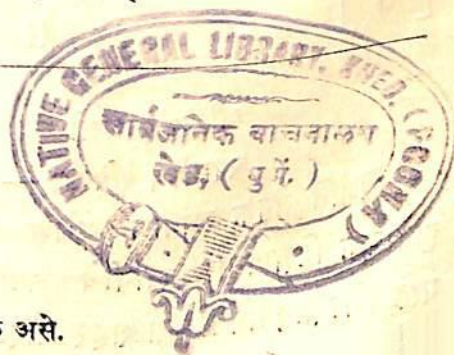 NATIVE GENERAL LIBRARY, KHED. (POONA)
सार्वजनिक वाचनालय
खेड, ( पुणें. )
असे.